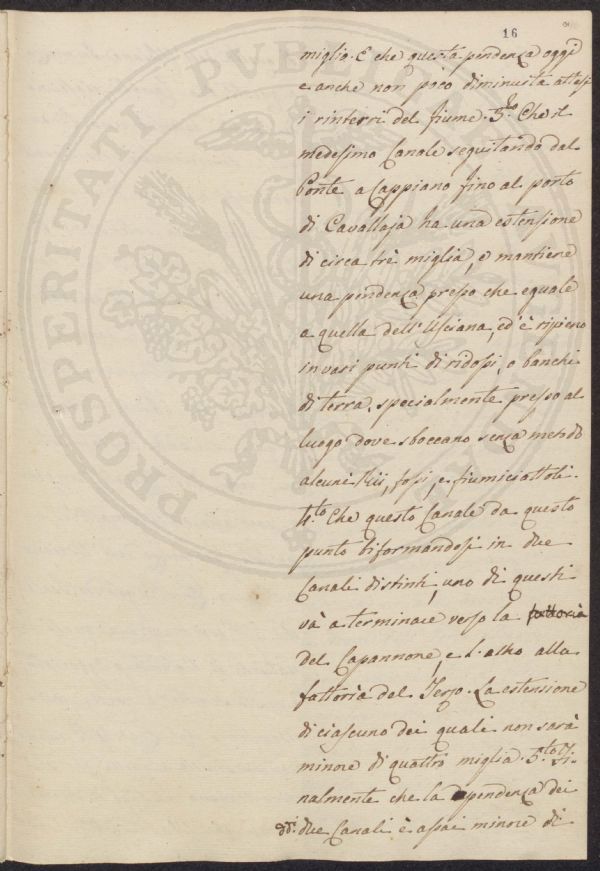 16
miglio. E che questa pendenza oggi
e anche non poco diminuita attesi
i rinterri del fiume. 3.zo Che il
medesimo Canale seguitando dal
Ponte a Cappiano fino al porto
di Cavallaja ha una estensione
di circa trè miglia, e mantiene
una pendenza presso che eguale
a quella dell'Usciana, ed è ripieno
in vari punti di ridossi, o banchi
di terra, specialmente presso al
luogo dove sboccano senza metodo
alcuni Rii, fossi, e fiumiciattoli.
4.to Che questo Canale da questo
punto biformandosi in due
Canali distinti, uno di questi
và a terminare verso la fattoria
del Capannone, e l'altro alla
fattoria del Terzo. La estensione
di ciascuno dei quali non sarà
minore di quattro miglia. 5.to Fi-
nalmente che la pendenza dei
dd.i due Canali è assai minore di
PROSPERITATI PUBLICAE